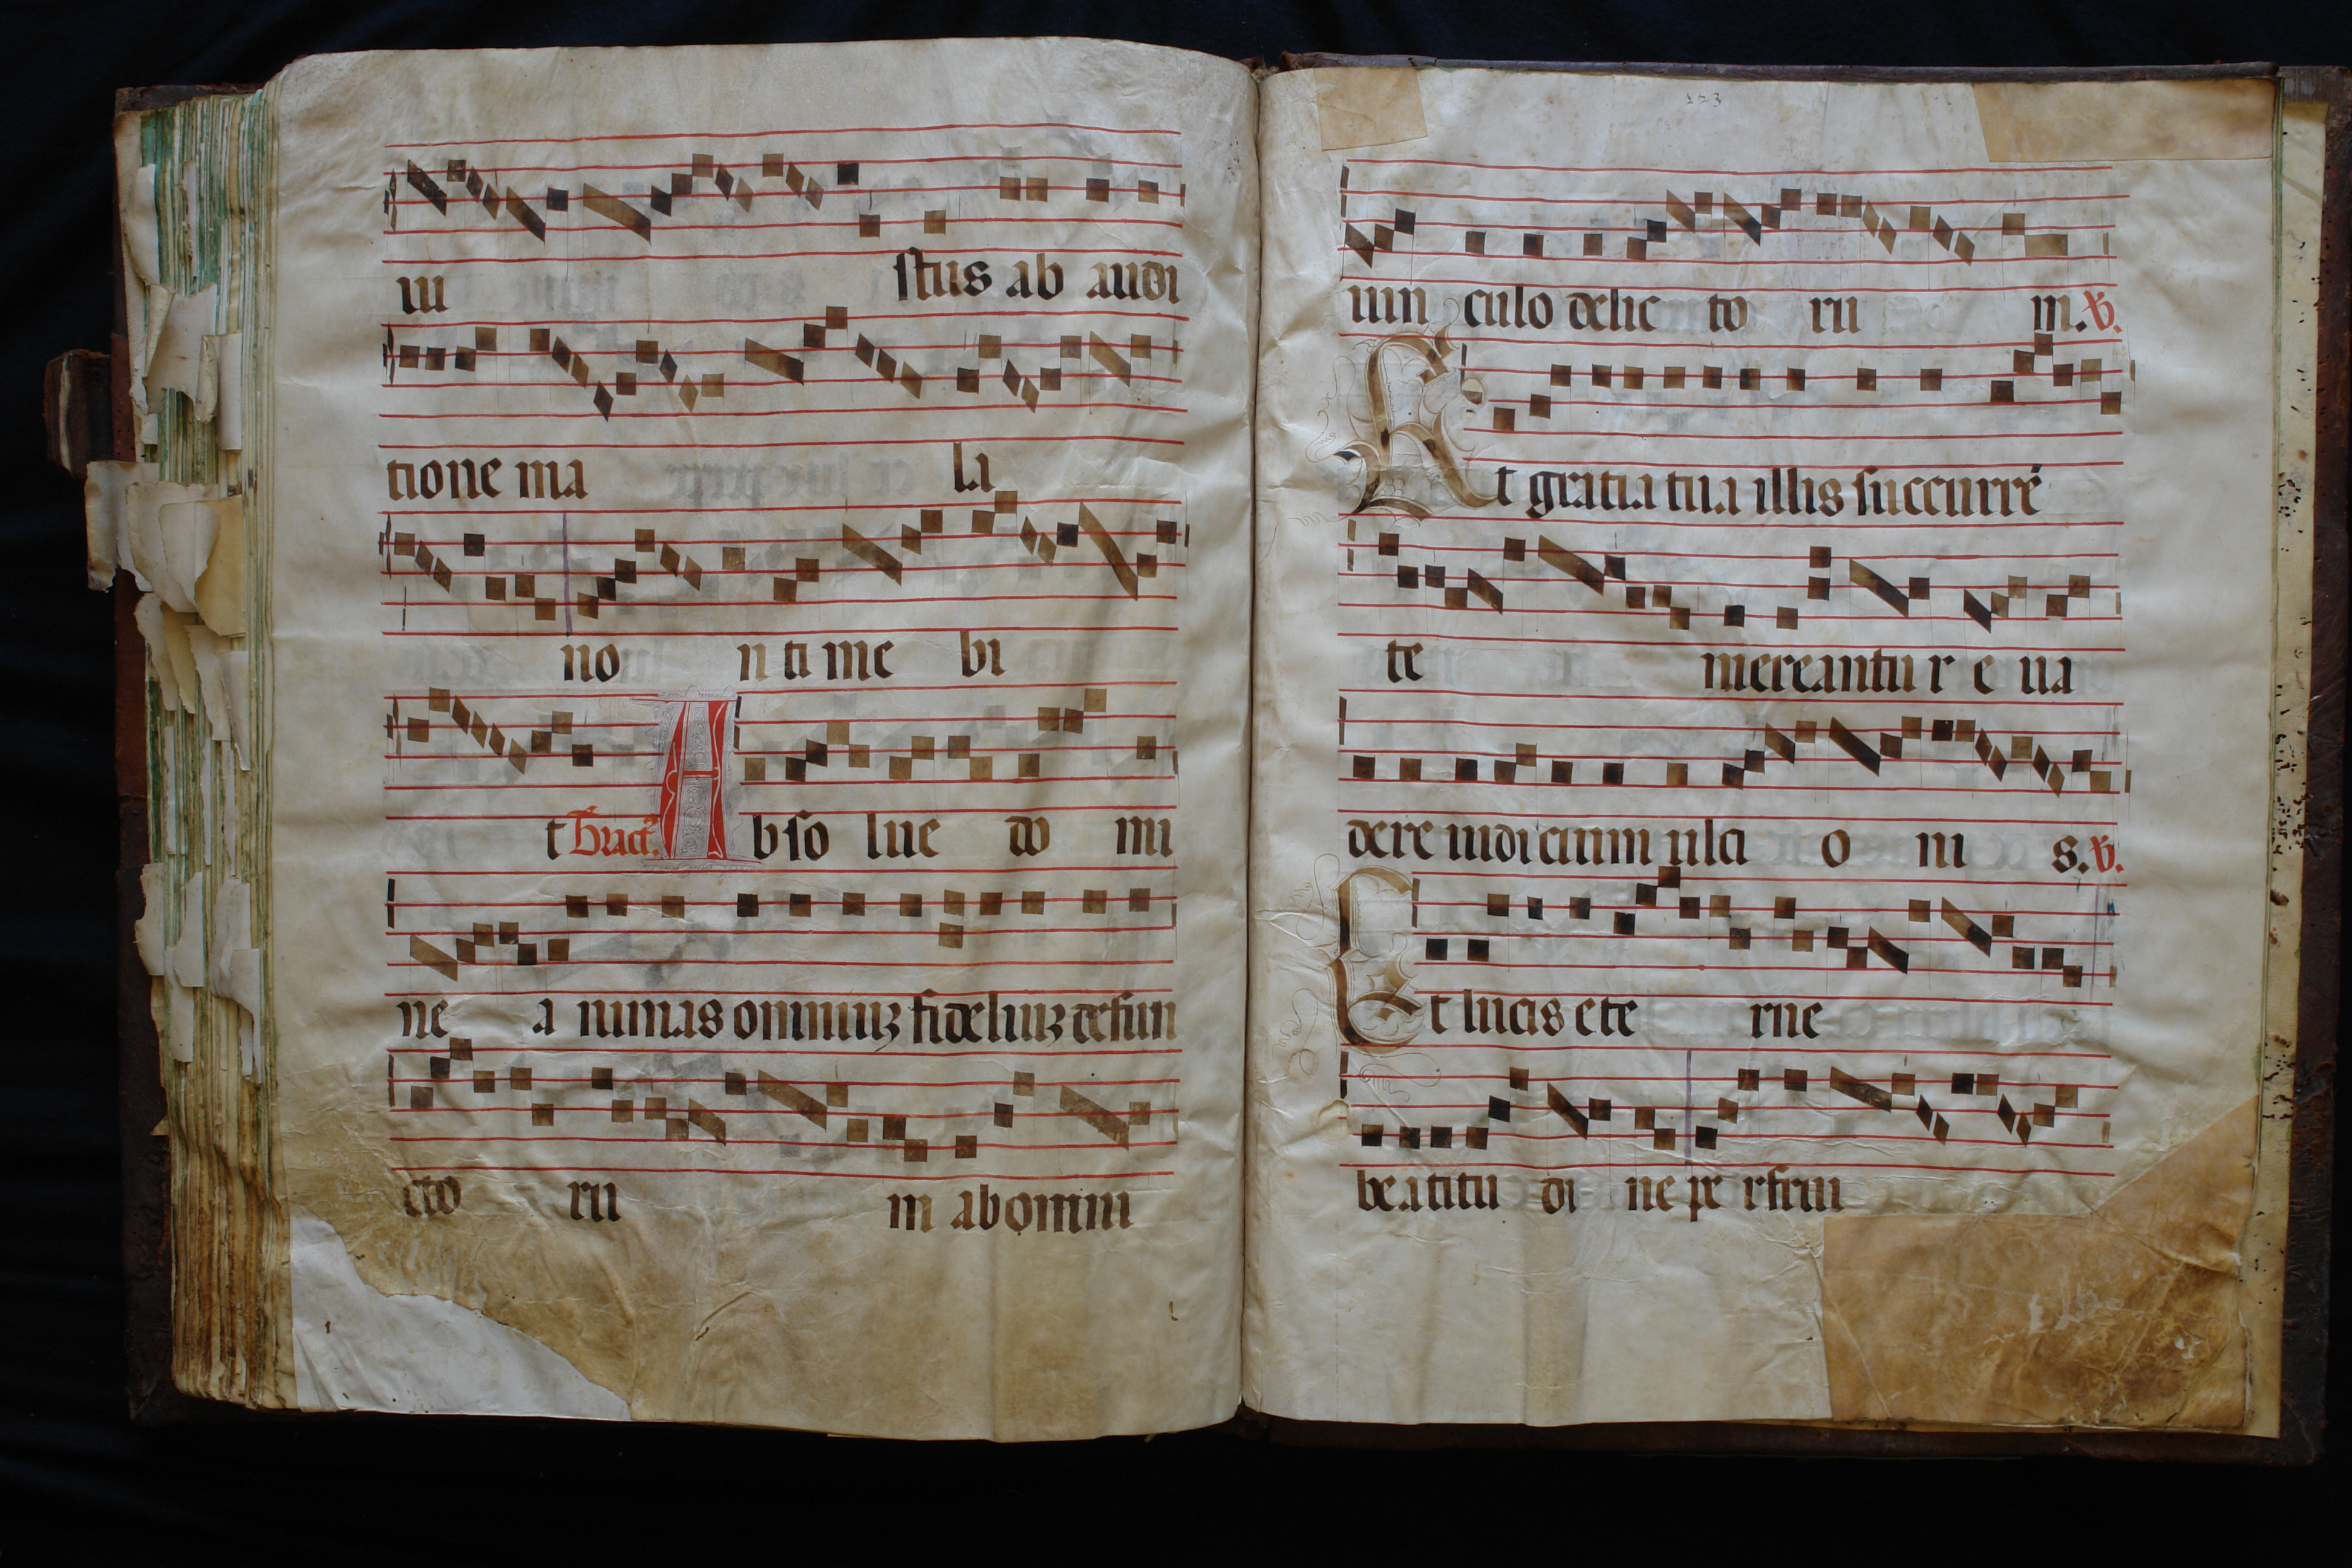 iu stus ab audi
tione ma la
no n ti me bi
t Tract. A bso lue do mi
ne a nimas omniuʒ fideliuʒ defun
cto ru m ab omni
223
uin culo delic to ru m. ℣.
Et gratia tua illis succurrē
te mereantu r e ua
dere iudicium ulci o ni s. ℣.
Et lucis ete rne
beatitu di ne pe rfrui